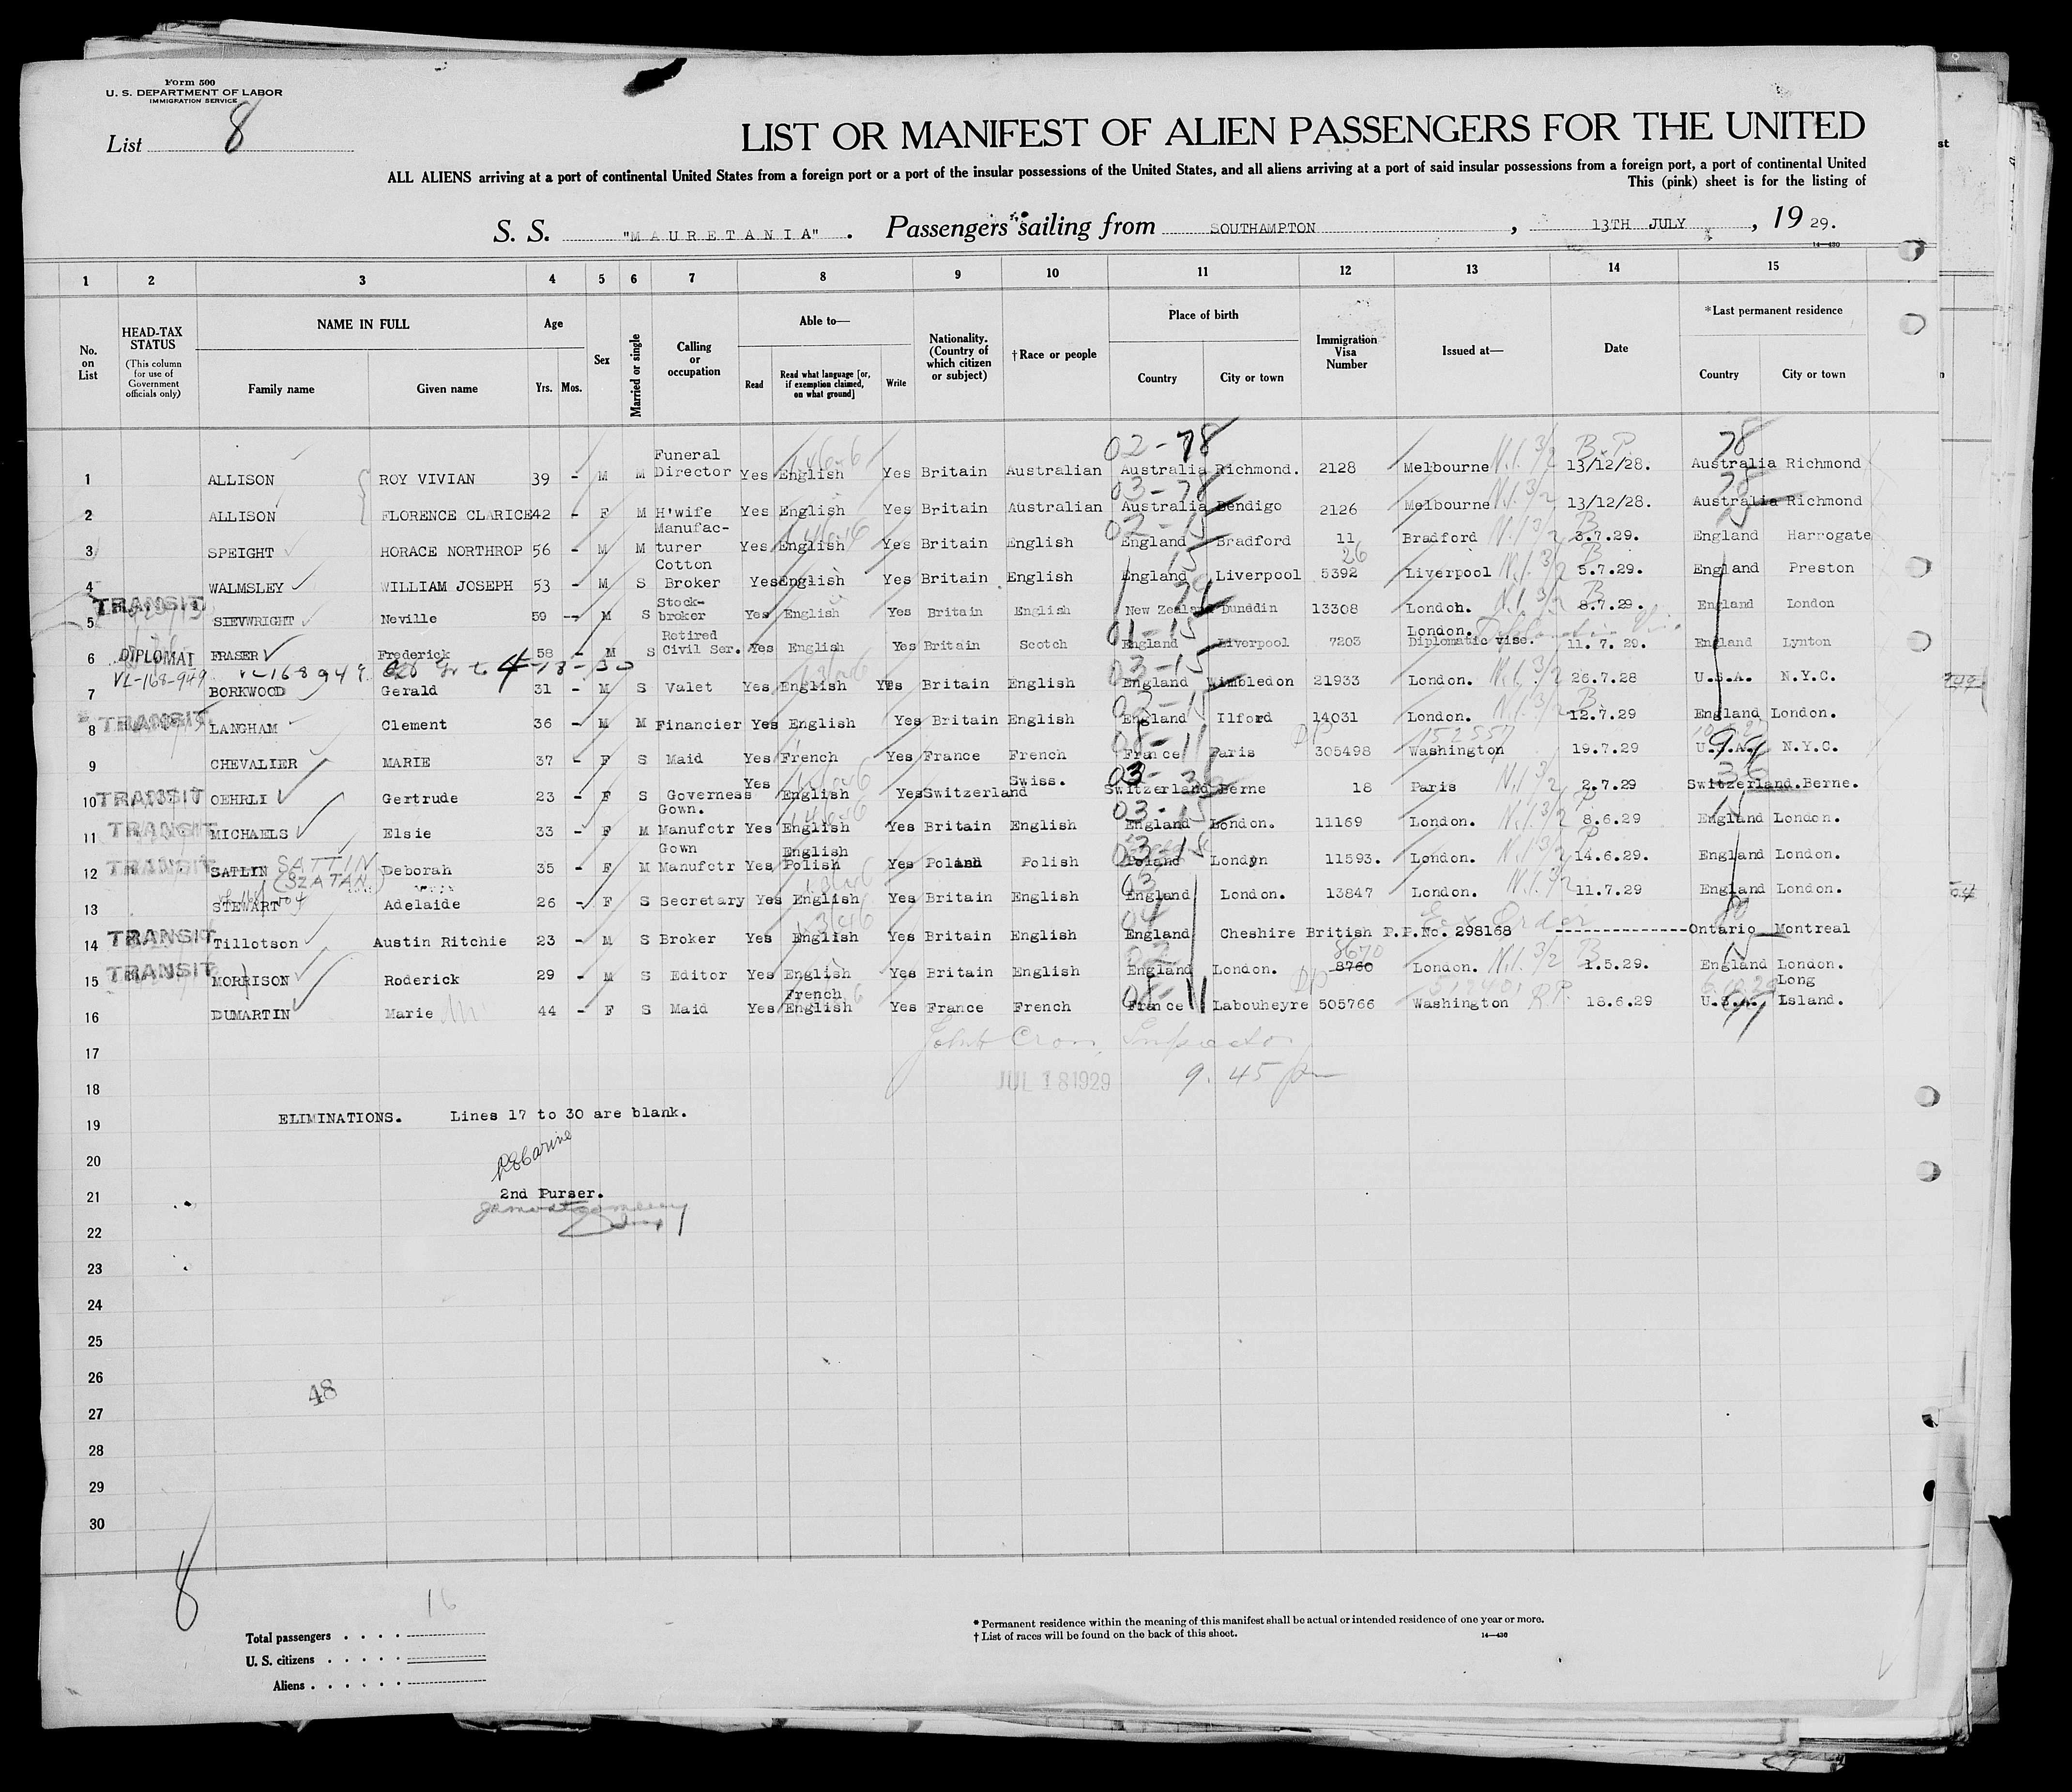 Form 500
U. S. DEPARTMENT OF LABOR
IMMIGRATION SERVICE
List 8
LIST OR MANIFEST OF ALIEN PASSENGERS FOR THE UNITED
ALL ALIENS arriving at a port of continental United States from a foreign port or a port of the insular possessions of the United States, and all aliens arriving at a port of said insular possessions from a foreign port, a port of continental United
This (pink) sheet is for the listing of
S. S. "MAURETANIA". Passengers sailing from SOUTHAMPTON, 13TH JULY, 19 29.
14—430
1 2 3 4 5 6 7 8 9 10 11 12 13 14 15
No. on List
HEAD-TAX STATUS
(This column for use of Government officials only)
NAME IN FULL
Family name Given name
Age
Yrs. Mos.
Sex
Married or single
Calling or occupation
Able to—
Read
Read what language [or, if exemption claimed, on what ground]
Write
Nationality. (Country of which citizen or subject)
†Race or people
Place of birth
Country City or town
Immigration Visa Number
Issued at—
Date
*Last permanent residence
Country City or town
02-78 B.P. 78
1 ALLISON ROY VIVIAN 39 - M M Funeral Director Yes English Yes Britain Australian Australia Richmond. 2128 Melbourne N.I. 3/2 13/12/28. Australia Richmond
03-78
2 ALLISON FLORENCE CLARICE 42 - F M H'wife Yes English Yes Britain Australian Australia Bendigo 2126 Melbourne N.I. 3/2 13/12/28. Australia Richmond
02-15
3 SPEIGHT HORACE NORTHROP 56 - M M Manufacturer Yes English Yes Britain English England Bradford 11 Bradford N.I. 3/2 3.7.29. England Harrogate
15 26
4 WALMSLEY WILLIAM JOSEPH 53 - M S Cotton Broker Yes English Yes Britain English England Liverpool 5392 Liverpool N.I. 3/2 5.7.29. England Preston
TRANSIT
5 SIEVWRIGHT Neville 59 - M S Stock-broker Yes English Yes Britain English New Zealand Dunddin 13308 London. N.I. 3/2 8.7.29. England London
01-15
6 DIPLOMAT FRASER Frederick 58 - M S Retired Civil Ser. Yes English Yes Britain Scotch England Liverpool 7203 London. Diplomatic vise. 11. 7. 29. England Lynton
VL-168-949 VL-168949 4-18-30
03-15
7 BORKWOOD Gerald 31 - M S Valet Yes English Yes Britain English England Wimbledon 21933 London. N.I. 3/2 26.7.28 U.S.A. N.Y.C.
8 TRANSIT LANGHAM Clement 36 - M M Financier Yes English Yes Britain English England Ilford 14031 London. N.I. 3/2 12.7.29 England London.
152557
9 CHEVALIER MARIE 37 - F S Maid Yes French Yes France French France Paris 305498 Washington 19.7.29 U.S.A. N.Y.C.
10 TRANSIT OEHRLI Gertrude 23 - F S Governess Yes English Yes Switzerland Swiss. Switzerland Berne 18 Paris N.I. 3/2 2.7.29 Switzerland. Berne.
03-15
11 TRANSIT MICHAELS Elsie 33 - F M Gown. Manufctr Yes English Yes Britain English England London. 11169 London. N.I. 3/2 8.6.29 England London.
03-15
12 TRANSIT SATLIN SATTIN (SZATAN) Deborah 35 - F M Gown Manufctr Yes English Polish Yes Poland Polish Poland London 11593. London. N.I. 3/2 14.6.29. England London.
13 STEWART Adelaide 26 - F S Secretary Yes English Yes Britain English England London. 13847 London. N.I. 3/2 11.7.29 England London.
14 TRANSIT Tillotson Austin Ritchie 23 - M S Broker Yes English Yes Britain English England Cheshire British P.P.No. 298168 -------------- Ontario Montreal
8670
15 TRANSIT MORRISON Roderick 29 - M S Editor Yes English Yes Britain English England London. 8760 London. N.I. 3/2 1.5.29. England London.
16 DUMARTIN Marie 44 - F S Maid Yes French English Yes France French France Labouheyre 505766 Washington R.P. 18.6.29 U.S.A. Long Island.
17
18 JUL 18 1929 9.45 pm
19 ELIMINATIONS. Lines 17 to 30 are blank.
20
21 2nd Purser.
22
23
24
25
26
48
27
28
29
30
8
16
Total passengers
U. S. citizens
Aliens
* Permanent residence within the meaning of this manifest shall be actual or intended residence of one year or more.
† List of races will be found on the back of this sheet.
14—430